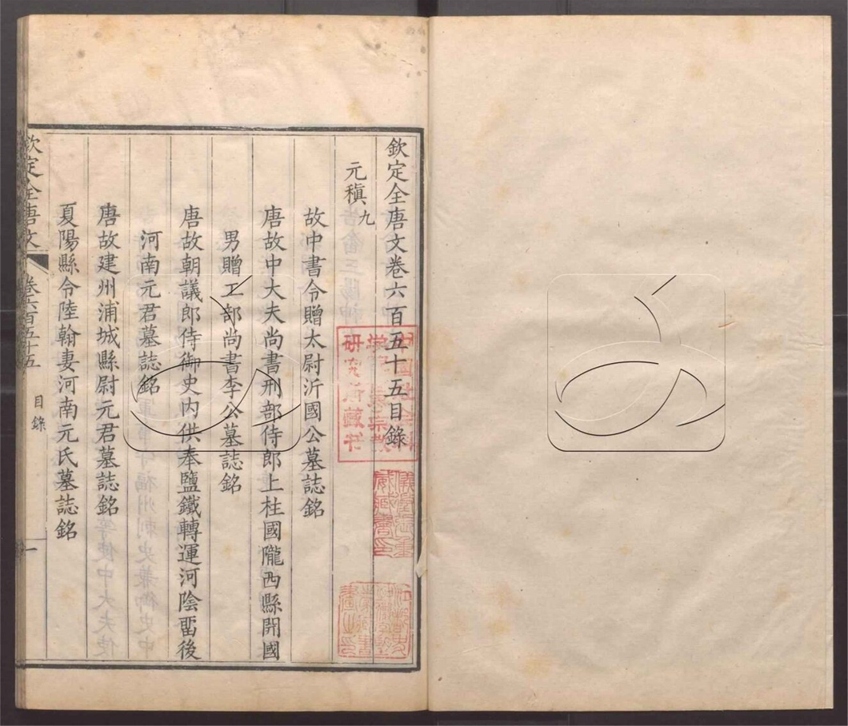 欽定全唐文卷六百五十五目錄
元稹九
故中書令贈太尉沂國公墓誌銘
唐故中大夫尚書刑部侍郎上柱國隴西縣開國
男贈工部尚書李公墓誌銘
唐故朝議郎侍御史內供奉鹽鐵轉運河陰畱後
河南元君墓誌銘
唐故建州浦城縣尉元君墓誌銘
夏陽縣令陸翰妻河南元氏墓誌銘
欽定全唐文 卷六百五十五 目錄 一